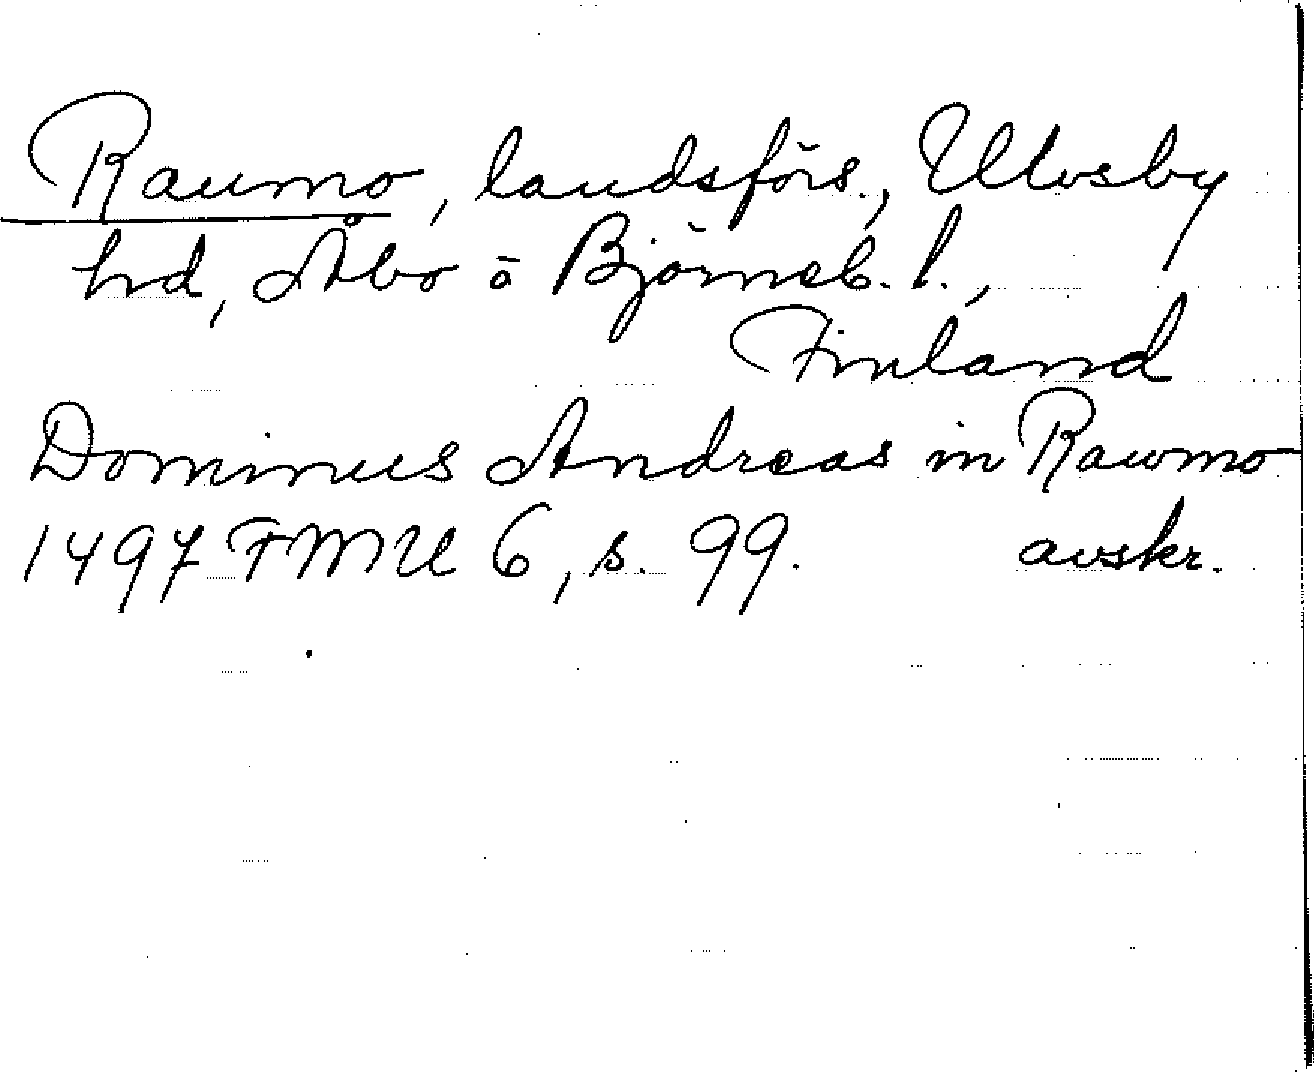 Raumo, landsförs., Ulvsby
hd, Åbo o Björneb. l.,
Finland
Dominus Andreas in Rawmo
1497 FMU 6, s. 99. avskr.